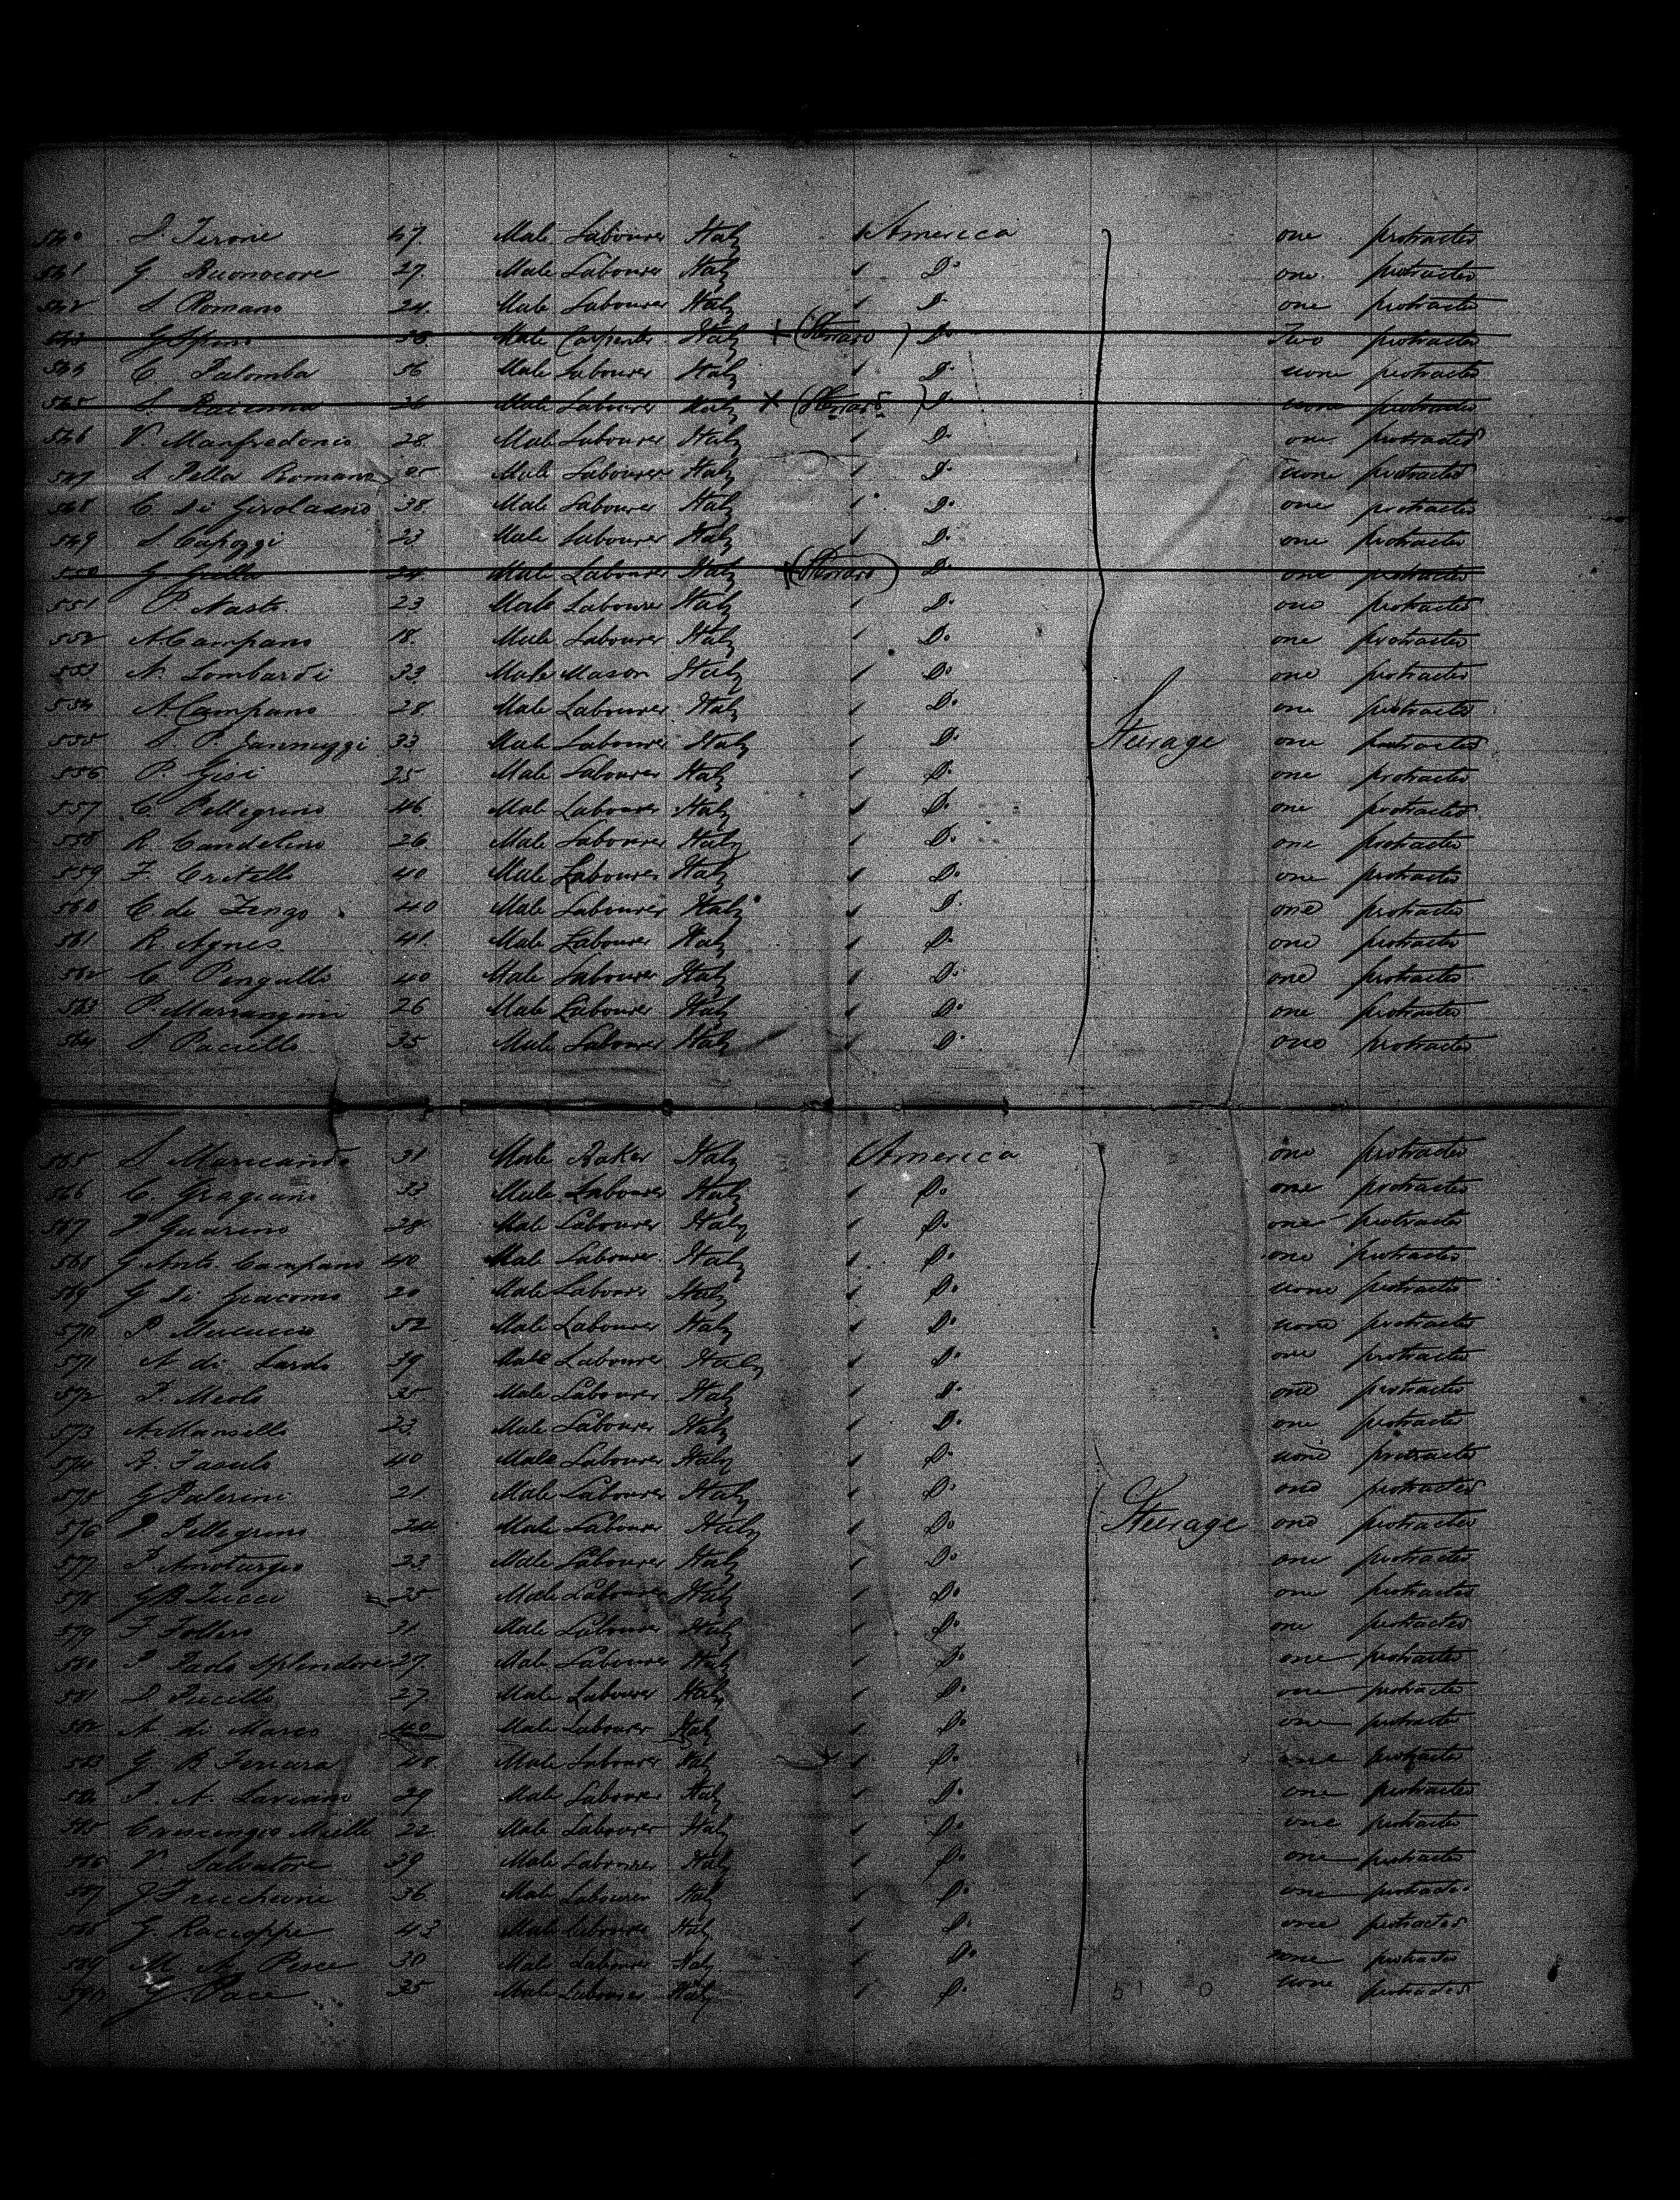 540 S. Jerone 47 Male Labourer Italy 1 America one protracted
541 G. Buonocore 27 Male Labourer Italy 1 Do one protracted
542 S. Romano 24 Male Labourer Italy 1 Do one protracted
543 38 Male Carpenter Italy X ( ) Do Two protracted
544 C. Palomba 56 Male Labourer Italy 1 Do none protracted
545 S. 26 Male Labourer Italy X ( ) Do none protracted
546 V. Manfredonio 28 Male Labourer Italy 1 Do one protracted
547 S. Della Romano Male Labourer Italy 1 Do none protracted
548 C. di Girolamo 38 Male Labourer Italy 1 Do one protracted
549 S. Capozzi 23 Male Labourer Italy 1 Do one protracted
550 G. 24 Male Labourer Italy ( ) Do one protracted
551 P. Nasto 23 Male Labourer Italy 1 Do one protracted
552 A. Campano 18 Male Labourer Italy 1 Do one protracted
553 N. Lombardi 33 Male Mason Italy 1 Do one protracted
554 A. Campano 28 Male Labourer Italy 1 Do one protracted
555 S. P. Jannuzzi 33 Male Labourer Italy 1 Do Steerage one protracted
556 P. Gisi 25 Male Labourer Italy 1 Do one protracted
557 C. Pellegrino 46 Male Labourer Italy 1 Do one protracted
558 R. Candelino 26 Male Labourer Italy 1 Do one protracted
559 F. Critello 40 Male Labourer Italy 1 Do one protracted
560 C. de Zingo 40 Male Labourer Italy 1 Do one protracted
561 R. Agnes 41 Male Labourer Italy 1 Do one protracted
562 C. Pengulli 40 Male Labourer Italy 1 Do one protracted
563 P. Marrangoni 26 Male Labourer Italy 1 Do one protracted
564 S. Paciello 35 Male Labourer Italy 1 Do one protracted
565 S. Maricando 31 Male Baker Italy 1 America one protracted
566 C. Graziano 33 Male Labourer Italy 1 Do one protracted
567 Guarino 28 Male Labourer Italy 1 Do one protracted
568 G. Anto. Campano 40 Male Labourer Italy 1 Do one protracted
569 G. di Giacomo 20 Male Labourer Italy 1 Do none protracted
570 P. 52 Male Labourer Italy 1 Do none protracted
571 A. di Sardo 39 Male Labourer Italy 1 Do one protracted
572 P. Meolo 35 Male Labourer Italy 1 Do one protracted
573 A. Mansello 23 Male Labourer Italy 1 Do one protracted
574 R. Fasulo 40 Male Labourer Italy 1 Do none protracted
575 G. Palerini 21 Male Labourer Italy 1 Do one protracted
576 P. Pellegrino 24 Male Labourer Italy 1 Do Steerage one protracted
577 P. Amoturgio 23 Male Labourer Italy 1 Do one protracted
578 G B Tucci 35 Male Labourer Italy 1 Do one protracted
579 F. Follero 31 Male Labourer Italy 1 Do one protracted
580 P. Paolo Splendore 37 Male Labourer Italy 1 Do one protracted
581 D. Pucillo 27 Male Labourer Italy 1 Do one protracted
582 A. di Marco 40 Male Labourer Italy 1 Do one protracted
583 G. B Ferrara 48 Male Labourer Italy 1 Do one protracted
584 F. A. Laviano 29 Male Labourer Italy 1 Do one protracted
585 Crescenzo Miello 22 Male Labourer Italy 1 Do one protracted
586 V. Salvatore 39 Male Labourer Italy 1 Do one protracted
587 36 Male Labourer Italy 1 Do one protracted
588 G. Racioppi 43 Male Labourer Italy 1 Do one protracted
589 M. A. Pesce 30 Male Labourer Italy 1 Do none protracted
590 G. Pace 35 Male Labourer Italy 1 Do 51 0 none protracted